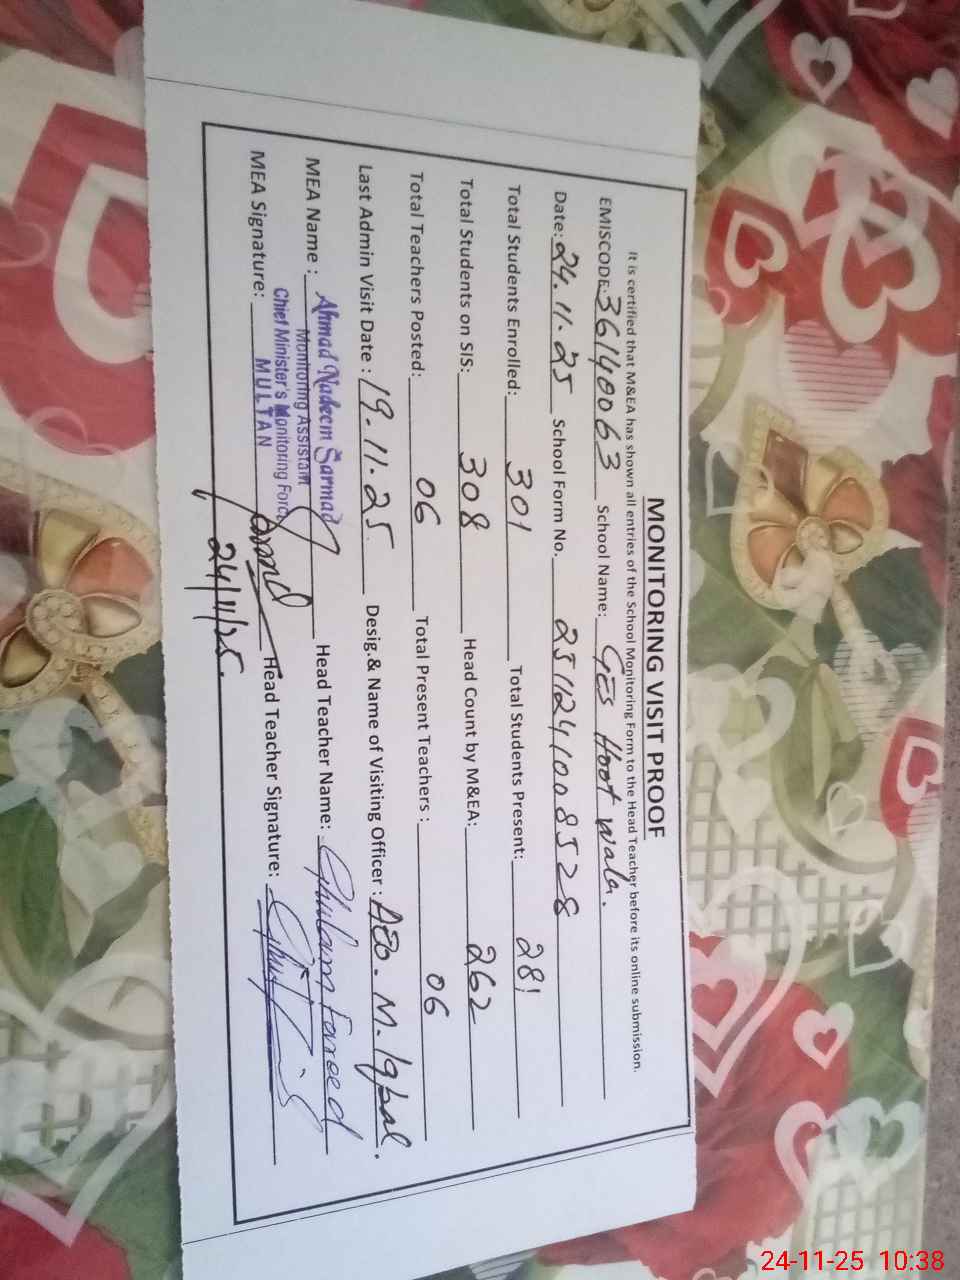 MONITORING VISIT PROOF
It is certified that M&EA has shown all entries of the School Monitoring Form to the Head Teacher before its online submission.
EMISCODE: 36140063 School Name: GES Hoot wala.
Date: 24.11.25 School Form No. 2511241008528
Total Students Enrolled: 301 Total Students Present: 281
Total Students on SIS: 308 Head Count by M&EA: 262
Total Teachers Posted: 06 Total Present Teachers : 06
Last Admin Visit Date : 19.11.25 Desig.& Name of Visiting Officer : AEO. M. Iqbal.
MEA Name : Ahmad Nadeem Sarmad Head Teacher Name: Ghulam Fareed
Monitoring Assistant
Chief Minister's Monitoring Force
MULTAN
MEA Signature: Head Teacher Signature:
24/11/25.
24-11-25 10:38